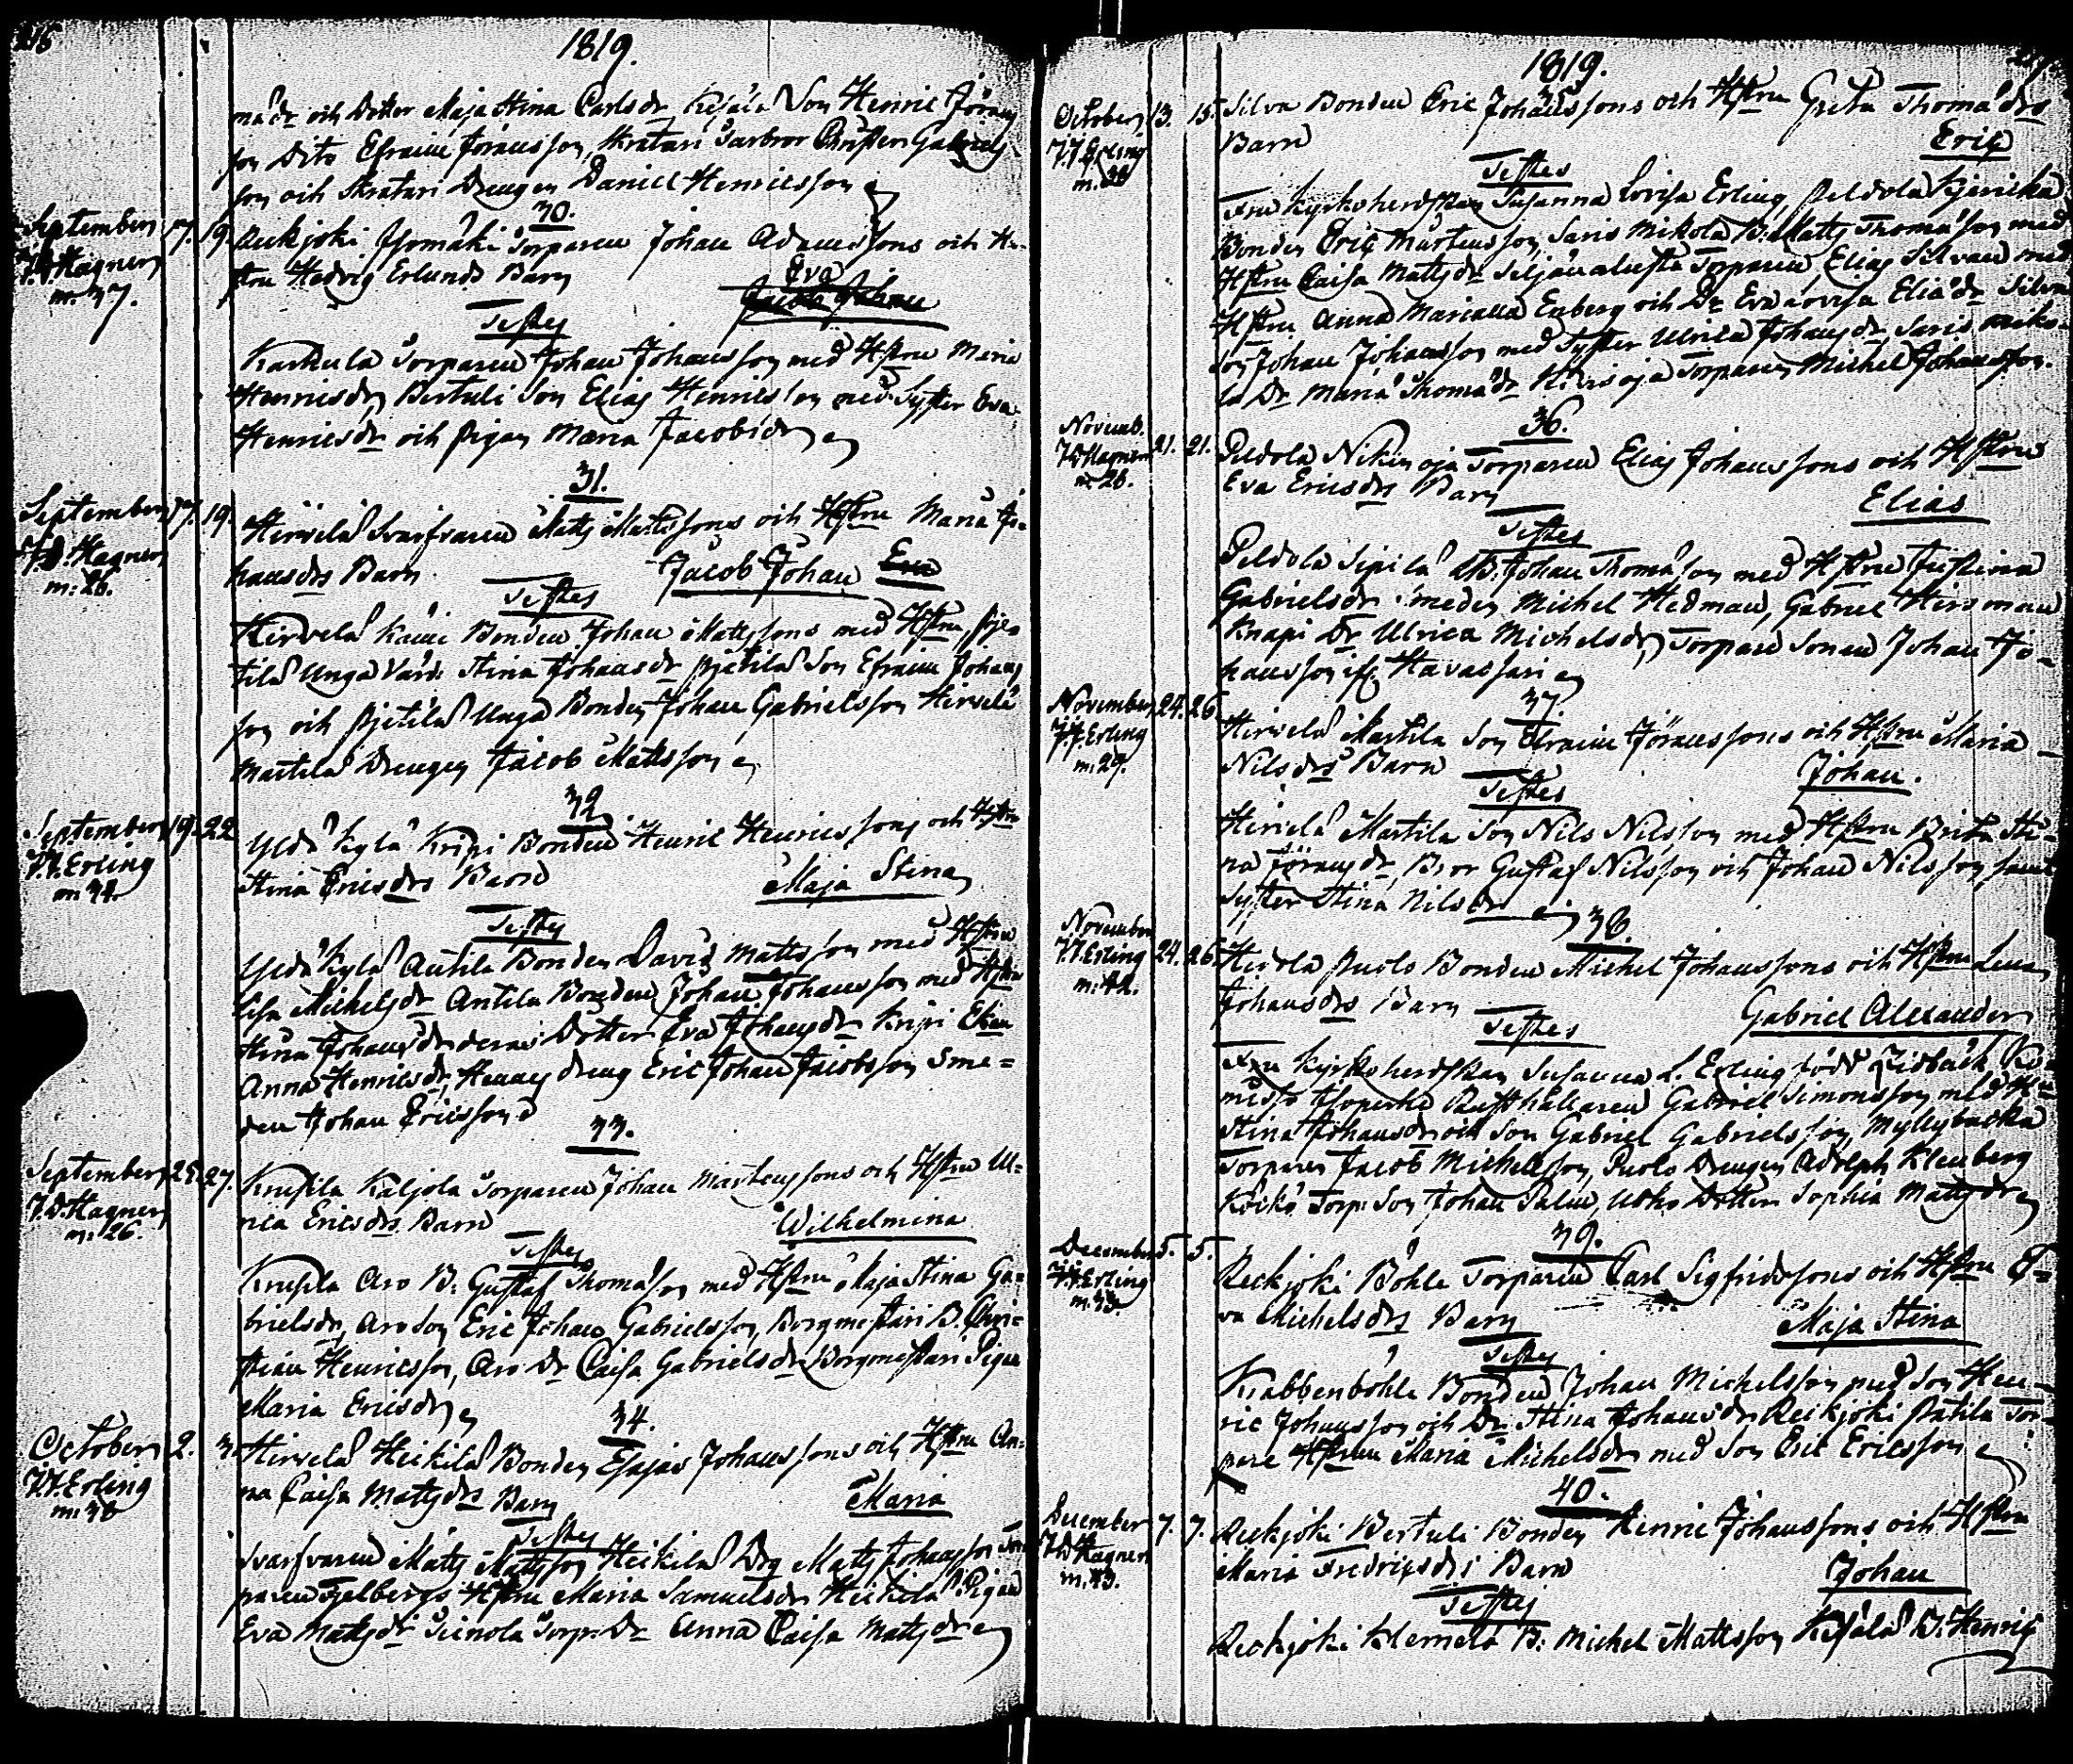 216
1819.
må dr och Dotter Maja Stina Carlsdr Kesälä Son Henric Jörans
son Dito Efraim Jöransson, Skratari Sarbror Christer Gabriels
son och Skratari Drengen Daniel Henricsson
30.
September 17. 19. Reckjoki Isomäki Torparen Johan Adamssons och Hu-
J.D. Hagner
m: 37.
stru Hedvig Erlunds Barn Eva
Jacob Johan
Testes
Karkula Torparen Johan Johansson med Hstru Maria
Henricsdr, Bertuli Son Elias Henricsson med Syster Eva
Henricsdr och Pigan Maria Jacobsdr
31.
September 17. 19. Hirvelä Svarfvaren Matts Mattssons och Hstru Maria Jo-
J.D. Hagner
m: 26.
hansdrs Barn Jacob Johan Eva
Testes
Hirvelä Bonden Johan Mattssons med Hstru, Pje-
tilä Unga Värd: Stina Johansdr Pjetilä Son Efraim Johans
son och Pjetilä Unga Bonden Johan Gabrielsson Hirvelä
Martila Drengen Jacob Mattsson
32.
September 19. 22. Yldö Kylä Kripi Bonden Henric Henricssons och Hstru
J.J. Erling
m: 42.
Stina Ericsdrs Barn Maja Stina
Testes
Yldö Kylä Antila Bonden David Mattsson med Hstru
Lisa Michelsdr Antila Bonden Johan Johansson med Hstru
Stina Johansdr deras Dotter Eva Johansdr Kripi
Anna Henricsdr, Hennes dreng Eric Johan Jacobsson Sme=
den Johan Ericsson
33.
September 25. 27. Krusila Kaljola Torparen Johan Mårtenssons och Hstru Ul=
J.D. Hagner
m: 26.
rica Ericsdrs Barn Wilhelmina
Testes
Krusila Aro B: Gustaf Thomasson med Hstru Maja Stina Ga=
brielsdr, Aro Son Eric Johan Gabrielsson, Borgmestari B. Chris=
tian Henricsson, Aro Dr Caisa Gabrielsdr Borgmestari Pigan
Maria Ericsdr
34.
October 2. 3. Hirvelä Heikilä Bonden Esajas Johanssons och Hstru An=
J.J. Erling
m: 40
na Caisa Mattsdrs Barn Maria
Testes
Svarfvaren Matts Mattsson Heikilä Drg Matts Johansson Tor
paren Fjelbergs Hstru Maria Samuelsdr Heikilä Pigan
Eva Mattsdr Sienola Torp: Dr Anna Caisa Mattsdr
1819.
October 13. 15. Silva Bonden Eric Johanssons och Hstru Greta Thomasdrs
J.J. Erling
m: 38
Barn Eric
Testes
Fru Kyrkoherdskan Susanna Lovisa Erling, Peldola Kjerickä
Bonden Eric Mårtensson, Saris Mikola B: Matts Thomasson med
Hstru Caisa Mattsdr Torparen Elias Silvan med
Hstru Anna Mariana Enberg och Dr Eva Lovisa Eliædr Silva
Son Johan Johansson med Syster Ulrica Johansdr, Saris miko-
la Dr Maria Thomasdr Kivisoja Torparen Michel Johansson.
36.
Novemb. 21. 21. Peldola Nikin oja Torparen Elias Johanssons och Hstru
J.D. Hagner
m: 26.
Eva Ericsdrs Barn Elias
Testes
Peldola Sipilä B: Johan Thomasson med Hstru Justina
Gabrielsdr Smeden Michel Hedman, Gabriel Hirsman
Knapi Dr Ulrica Michelsdr, Torpare Sonen Johan Jo-
hansson ifr. Havassari
37.
November 24. 26. Hirvelä Martila Son Efraim Jöranssons och Hstru Maria
J.J. Erling
m: 29.
Nilsdrs Barn Johan.
Testes
Hirvelä Martila Son Nils Nilsson med Hstru Brita Sti-
na Jöransdr, Bror Gustaf Nilsson och Johan Nilsson, samt
Syster Stina Nilsdr
38.
November 24. 26. Heidola Puolo Bonden Michel Johanssons och Hstru Lena
J.J. Erling
m: 42.
Johansdrs Barn Gabriel Alexander
Testes
Fru Kyrkoherdskan Susanna L. Erling född Lidbäck
Rusthållaren Gabriel Simonsson med H
Stina Johansdr och Son Gabriel Gabrielsson, Myllybacka
Torparen Jacob Michelsson, Puolo Drengen Adolph Klenberg
Torp: Son Johan Palin, Uoko Dotter Sophia Mattsdr
39.
December 5. 5. Reckjoki Böhle Torparen Carl Sigfridssons och Hstru E=
J.J. Erling
m: 33.
va Michelsdrs Barn Maja Stina
Testes
Krabbenböhle Bonden Johan Michelsson med Son Hen-
ric Johansson och Dr Stina Johansdr Reckjoki Pätilä Tor-
pare Hstrun Maria Michelsdr med Son Eric Ericsson
40.
December 7. 7. Reckjoki Bertuli Bonden Henric Johanssons och Hstru
J.D. Hagner
m. 43.
Maria Fredricsdrs Barn Johan
Testes
Reckjoki Klemelä B: Michel Mattsson Kesälä D. Henric